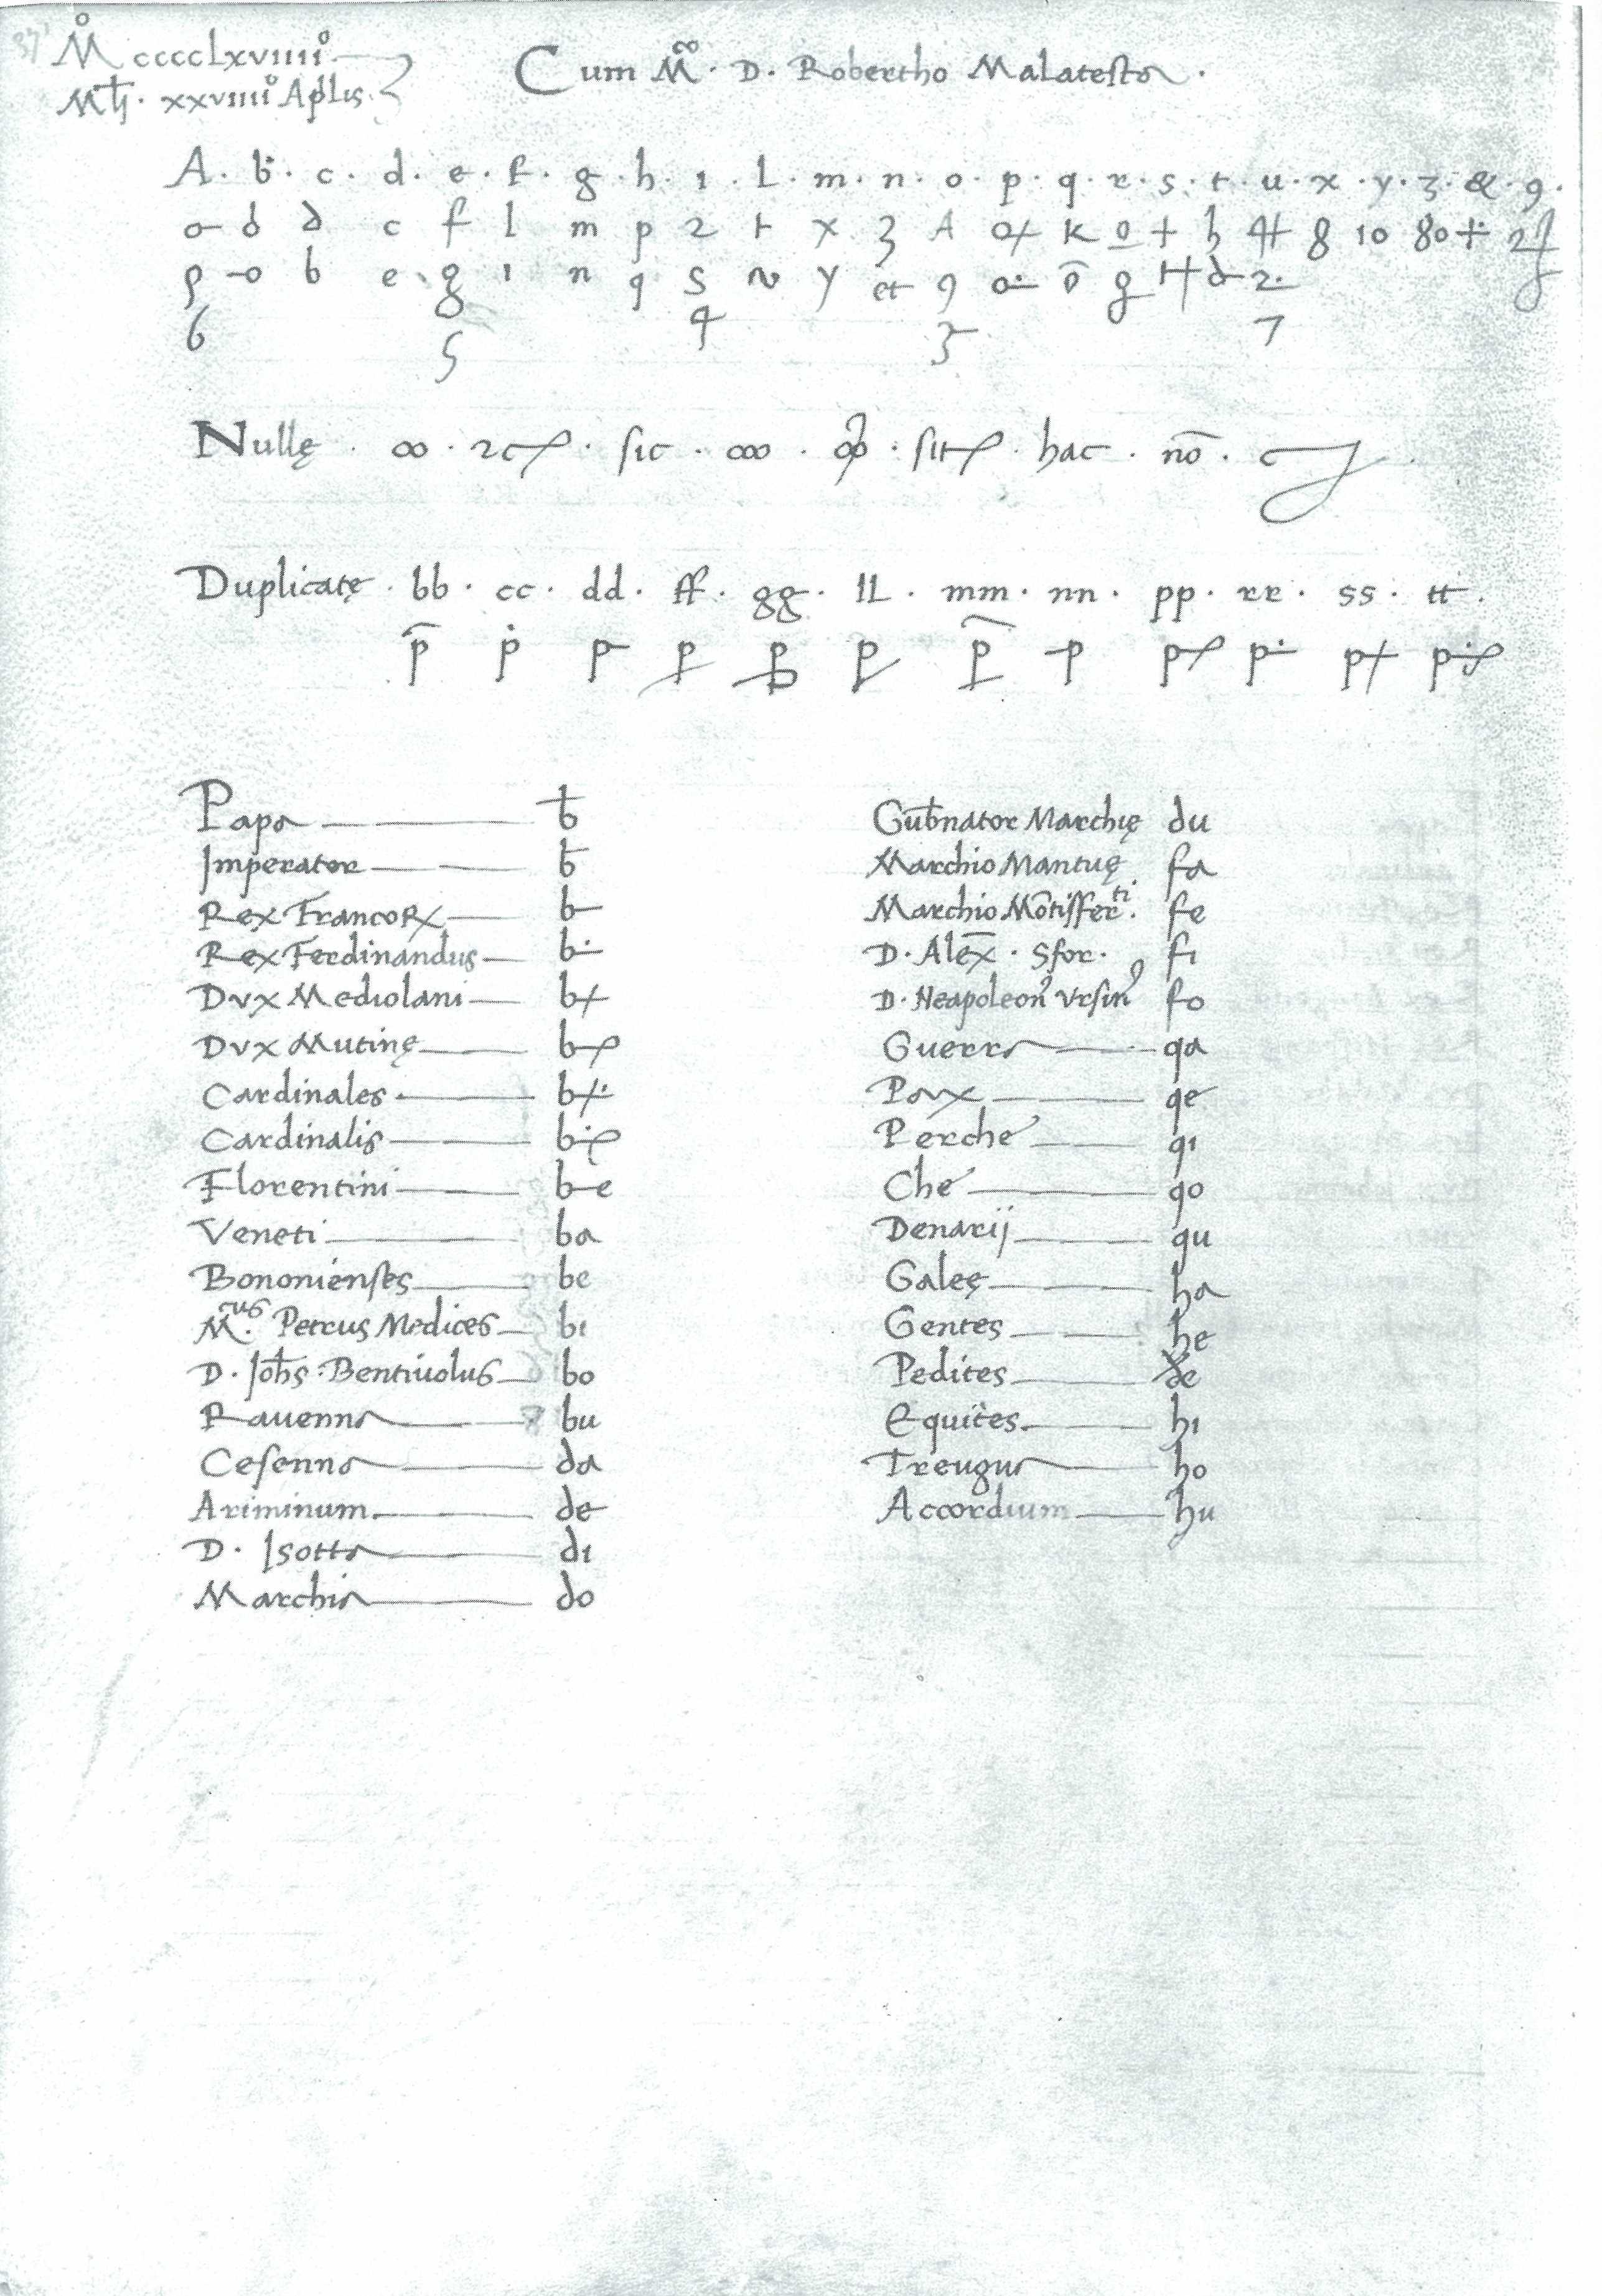 M̊ cccclxviiii°
Mtij. xxviiii° Apłis.
Cum M.co D. Robertho Malatesta.
A. b. c. d. e. f. g. h. i. l. m. n. o. p. q. r. s. t. u. x. y. z. &. 9.
d c f l m p 2 t x 3 A k o + h 8 10 80
b e g i n q s y et 9 ō g 2
6 5 4 3 7
Nullę . ∞ . sic . . hac . nō .
Duplicatę . bb . cc . dd . ff . gg . ll . mm . nn . pp . rr . ss . tt .
p̄ ṗ p p p p p̄ p p p p p
Papa
Imperator
Rex Francoꝝ b-
Rex Ferdinandus
Dux Mediolani b+
Dux Mutinę
Cardinales
Cardinalis
Florentini b-e
Veneti ba
Bononienses be
M.cus Petrus Medices bi
D. Johs. Bentiuolus bo
Rauenna bu
Cesenna da
Ariminum de
D. Isotta di
Marchia do
Gubnator Marchię du
Marchio Mantuę fa
Marchio Mōtisferti. fe
D. Alex̄. Sfor. fi
D. Neapoleon9 Ursin9 fo
Guerra qa
Pax qe
Perche qi
Che qo
Denarij qu
Galeę ha
Gentes he
Pedites de
Equites hi
Treugua ho
Accordium hu